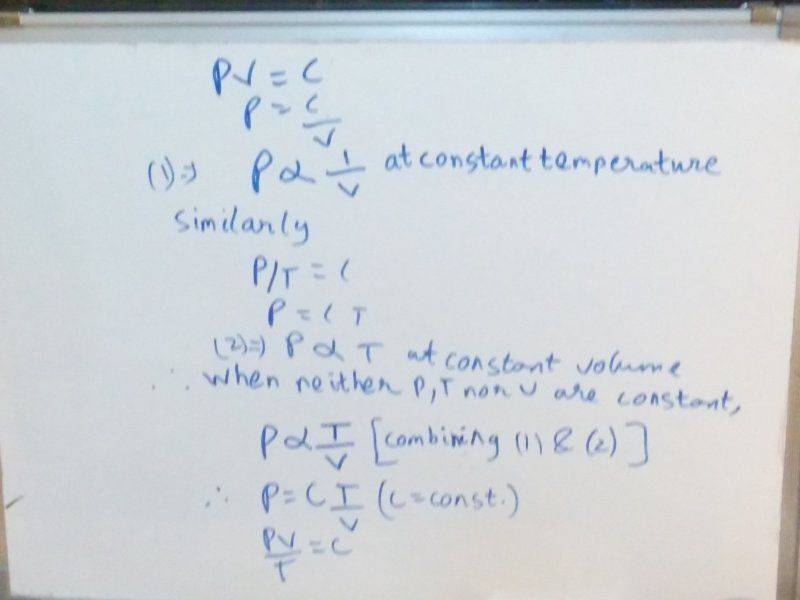 PV = C
P = C/V
(1)⇒ P ∝ 1/V at constant temperature
Similarly
P/T = C
P = C T
(2)⇒ P ∝ T at constant volume
∴ when neither P, T nor V are constant,
P ∝ T/V [combining (1) & (2)]
∴ P = C T/V (C = const.)
PV/T = C